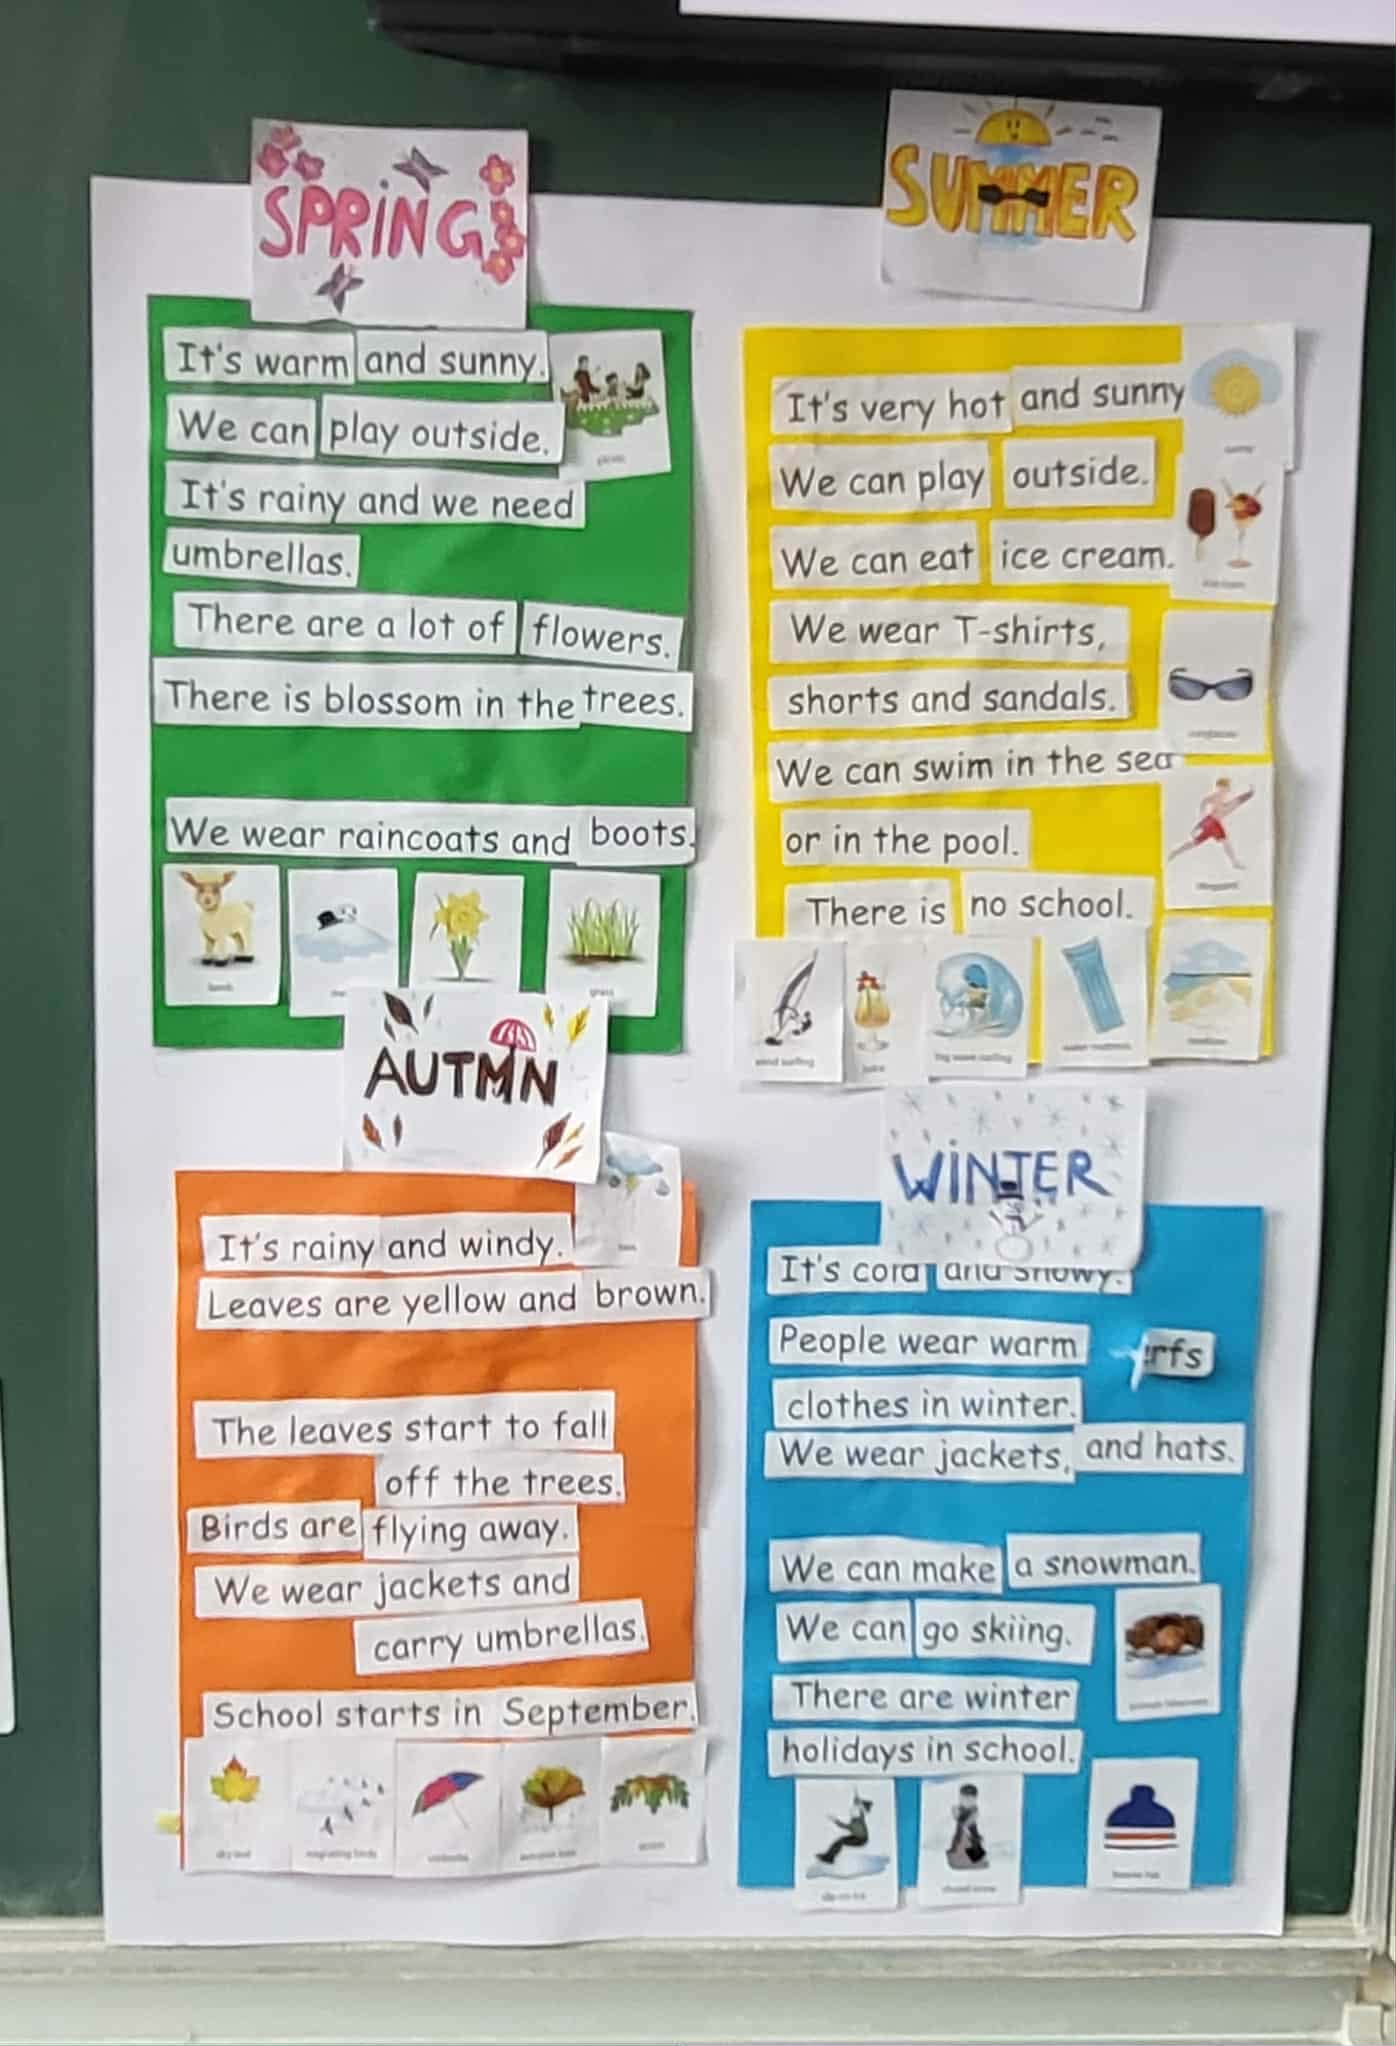 SPRING
It's warm and sunny.
We can play outside.
It's rainy and we need
umbrellas.
There are a lot of flowers.
There is blossom in the trees.
We wear raincoats and boots.
lamb
grass
SUMMER
It's very hot and sunny
We can play outside.
We can eat ice cream.
We wear T-shirts,
shorts and sandals.
We can swim in the sea
or in the pool.
There is no school.
wind surfing
juice
big wave surfing
AUTMN
It's rainy and windy.
Leaves are yellow and brown.
The leaves start to fall
off the trees.
Birds are flying away.
We wear jackets and
carry umbrellas.
School starts in September.
dry leaf
migrating birds
umbrella
WINTER
It's cold and snowy.
People wear warm
rfs
clothes in winter.
We wear jackets, and hats.
We can make a snowman.
We can go skiing.
There are winter
holidays in school.